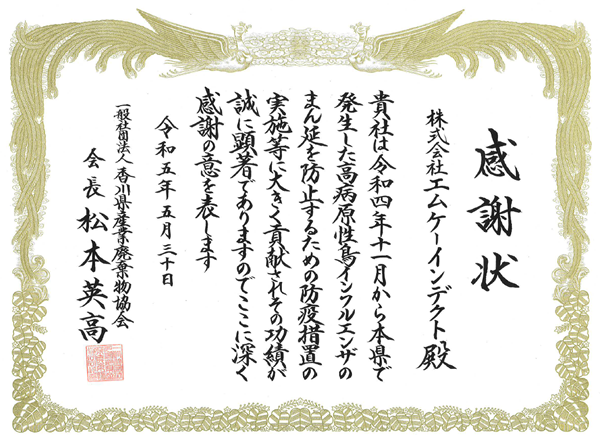 感謝状
株式会社エムケーインデクト殿
貴社は令和四年十一月から本県で
発生した高病原性鳥インフルエンザの
まん延を防止するための防疫措置の
実施等に大きく貢献されその功績が
誠に顕著でありますのでここに深く
感謝の意を表します
令和五年五月三十日
一般社団法人 香川県産業廃棄物協会
会長 松本英高